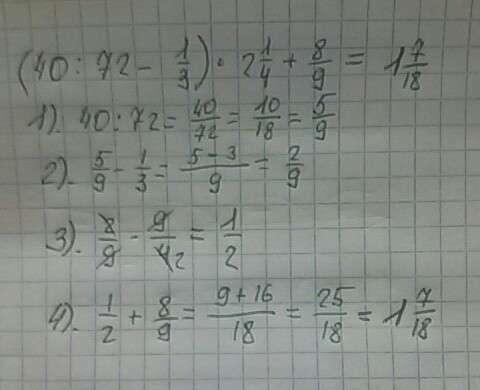 (40 : 72 - 1/3) · 2 1/4 + 8/9 = 1 7/18
1). 40 : 72 = 40/72 = 10/18 = 5/9
2). 5/9 - 1/3 = 5-3/9 = 2/9
3). 8/9 · 9/4 2 = 1/2
4). 1/2 + 8/9 = 9+16/18 = 25/18 = 1 7/18